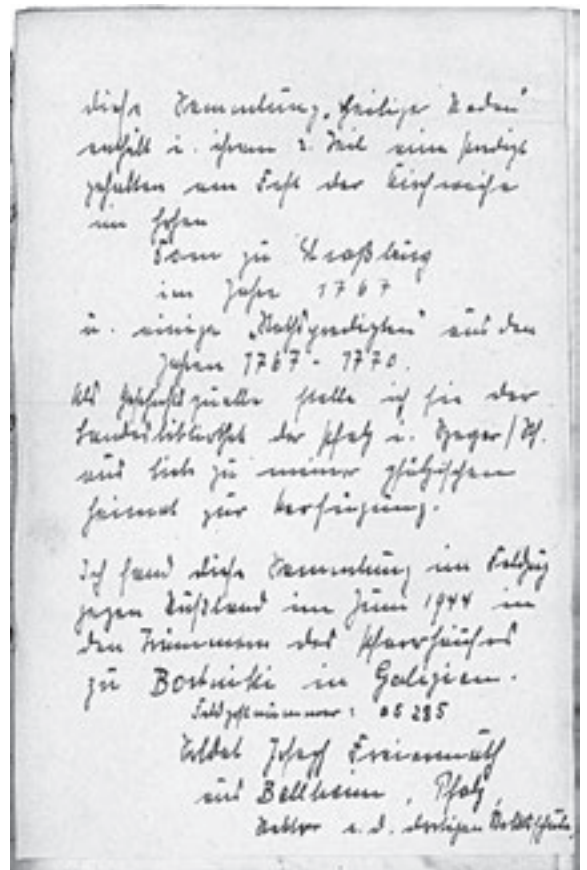 diese Sammlung „heiliger Reden"
enthält i. ihrem 2. Teil eine Predigt
gehalten am Fest der Kirchweihe
im hohen
Dom zu Straßburg
im Jahre 1767
u. einige „Rathspredigten" aus den
Jahren 1767 - 1770.
Als Geschichtsquelle stelle ich sie der
Landesbibliothek der Pfalz i. Speyer/Rh.
aus Lieb zu meiner pfälzischen
Heimat zur Verfügung.
Ich fand diese Sammlung im Feldzug
gegen Rußland im Juni 1944 in
den Trümmern des Pfarrhauses
zu in Galizien.
Feldpostnummer: 05 285
Soldat Josef Freiermuth
aus Bellheim, Pfalz,
Rektor a. d. dortigen Volksschule